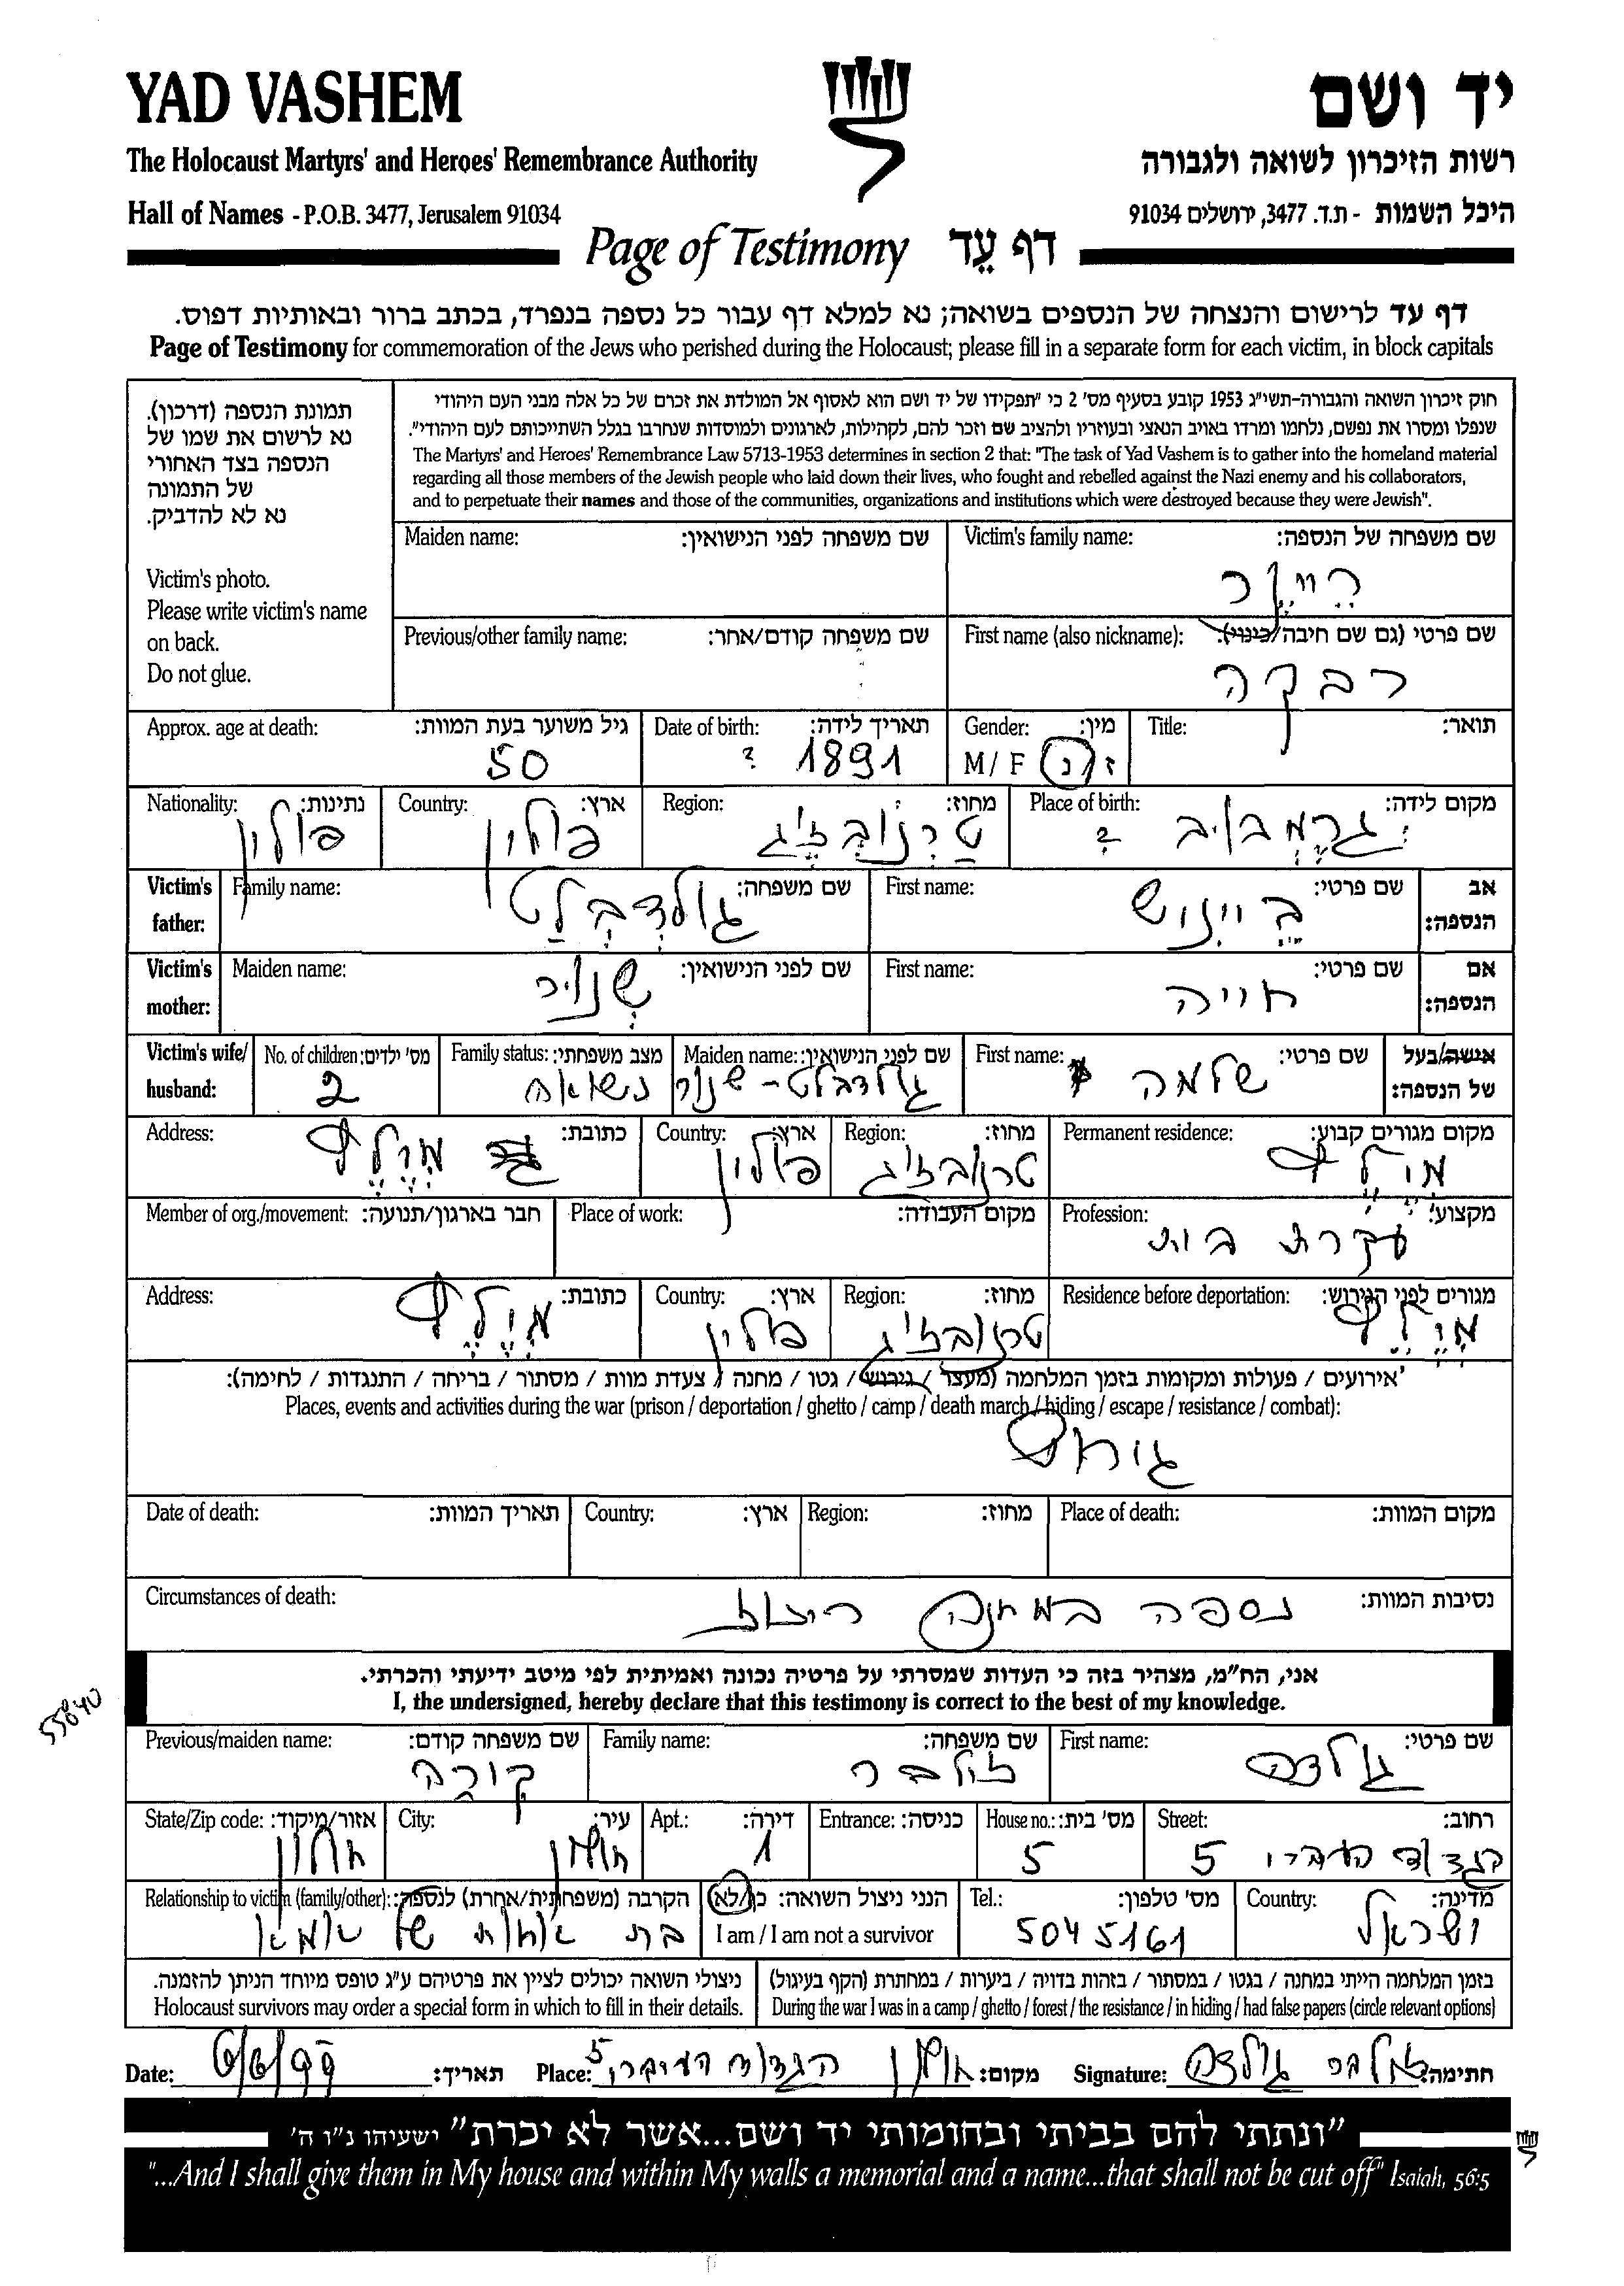 YAD VASHEM
יד ושם
The Holocaust Martyrs' and Heroes' Remembrance Authority
רשות הזיכרון לשואה ולגבורה
Hall of Names - P.O.B. 3477, Jerusalem 91034
היכל השמות - ת.ד. 3477, ירושלים 91034
Page of Testimony דף עֵד
דף עד לרישום והנצחה של הנספים בשואה; נא למלא דף עבור כל נספה בנפרד, בכתב ברור ובאותיות דפוס.
Page of Testimony for commemoration of the Jews who perished during the Holocaust; please fill in a separate form for each victim, in block capitals
תמונת הנספה (דרכון).
נא לרשום את שמו של
הנספה בצד האחורי
של התמונה
נא לא להדביק.
Victim's photo.
Please write victim's name
on back.
Do not glue.
חוק זיכרון השואה והגבורה-תשי"ג 1953 קובע בסעיף מס' 2 כי "תפקידו של יד ושם הוא לאסוף אל המולדת את זכרם של כל אלה מבני העם היהודי
שנפלו ומסרו את נפשם, נלחמו ומרדו באויב הנאצי ובעוזריו ולהציב שם וזכר להם, לקהילות, לארגונים ולמוסדות שנחרבו בגלל השתייכותם לעם היהודי".
The Martyrs' and Heroes' Remembrance Law 5713-1953 determines in section 2 that: "The task of Yad Vashem is to gather into the homeland material
regarding all those members of the Jewish people who laid down their lives, who fought and rebelled against the Nazi enemy and his collaborators,
and to perpetuate their names and those of the communities, organizations and institutions which were destroyed because they were Jewish".
Victim's family name: שם משפחה של הנספה:
Maiden name: שם משפחה לפני הנישואין:
First name (also nickname): שם פרטי (גם שם חיבה/כינוי):
רבקה
Previous/other family name: שם משפחה קודם/אחר:
Title: תואר:
Gender: מין:
M / F ז/נ
Date of birth: תאריך לידה:
1891 ?
Approx. age at death: גיל משוער בעת המוות:
50
Place of birth: מקום לידה:
?
Region: מחוז:
טַרְנוֹבְּזֶ'ג
Country: ארץ:
פולין
Nationality: נתינות:
פולין
Victim's father: אב הנספה:
First name: שם פרטי:
Family name: שם משפחה:
גולדבלט
Victim's mother: אם הנספה:
First name: שם פרטי:
חייה
Maiden name: שם לפני הנישואין:
Victim's wife/husband: אישה/בעל של הנספה:
First name: שם פרטי:
שלמה
Maiden name: שם לפני הנישואין:
Family status: מצב משפחתי:
נשואה
No. of children: מס' ילדים:
2
Permanent residence: מקום מגורים קבוע:
Region: מחוז:
טרנובז'ג
Country: ארץ:
פולין
Address: כתובת:
Profession: מקצוע:
עקרת בית
Place of work: מקום העבודה:
Member of org./movement: חבר בארגון/תנועה:
Residence before deportation: מגורים לפני הגירוש:
Region: מחוז:
טרנובז'ג
Country: ארץ:
פולין
Address: כתובת:
אירועים / פעולות ומקומות בזמן המלחמה (מעצר / גירוש / גטו / מחנה / צעדת מוות / מסתור / בריחה / התנגדות / לחימה):
Places, events and activities during the war (prison / deportation / ghetto / camp / death march / hiding / escape / resistance / combat):
גורש
Place of death: מקום המוות:
Region: מחוז:
Country: ארץ:
Date of death: תאריך המוות:
Circumstances of death: נסיבות המוות:
נספה במחנה ריכוז
אני, הח"מ, מצהיר בזה כי העדות שמסרתי על פרטיה נכונה ואמיתית לפי מיטב ידיעתי והכרתי.
I, the undersigned, hereby declare that this testimony is correct to the best of my knowledge.
55840
First name: שם פרטי:
גולדה
Family name: שם משפחה:
זילבר
Previous/maiden name: שם משפחה קודם:
Street: רחוב:
הגדוד העברי 5
House no.: מס' בית:
5
Entrance: כניסה:
Apt.: דירה:
1
City: עיר:
חולון
State/Zip code: אזור/מיקוד:
חולון
Country: מדינה:
ישראל
Tel.: מס' טלפון:
5045161
הנני ניצול השואה: כן/לא
I am / I am not a survivor
Relationship to victim (family/other): הקרבה (משפחתית/אחרת) לנספה:
בת אחות של אמא
בזמן המלחמה הייתי במחנה / בגטו / במסתור / בזהות בדויה / ביערות / במחתרת (הקף בעיגול)
During the war I was in a camp / ghetto / forest / the resistance / in hiding / had false papers (circle relevant options)
ניצולי השואה יכולים לציין את פרטיהם ע"ג טופס מיוחד הניתן להזמנה.
Holocaust survivors may order a special form in which to fill in their details.
Date: 6/6/99 תאריך:
Place: הגדוד העברי 5 חולון מקום:
Signature: זילבר גולדה חתימה:
"ונתתי להם בביתי ובחומותי יד ושם...אשר לא יכרת" ישעיהו נ"ו ה'
"...And I shall give them in My house and within My walls a memorial and a name...that shall not be cut off" Isaiah, 56:5